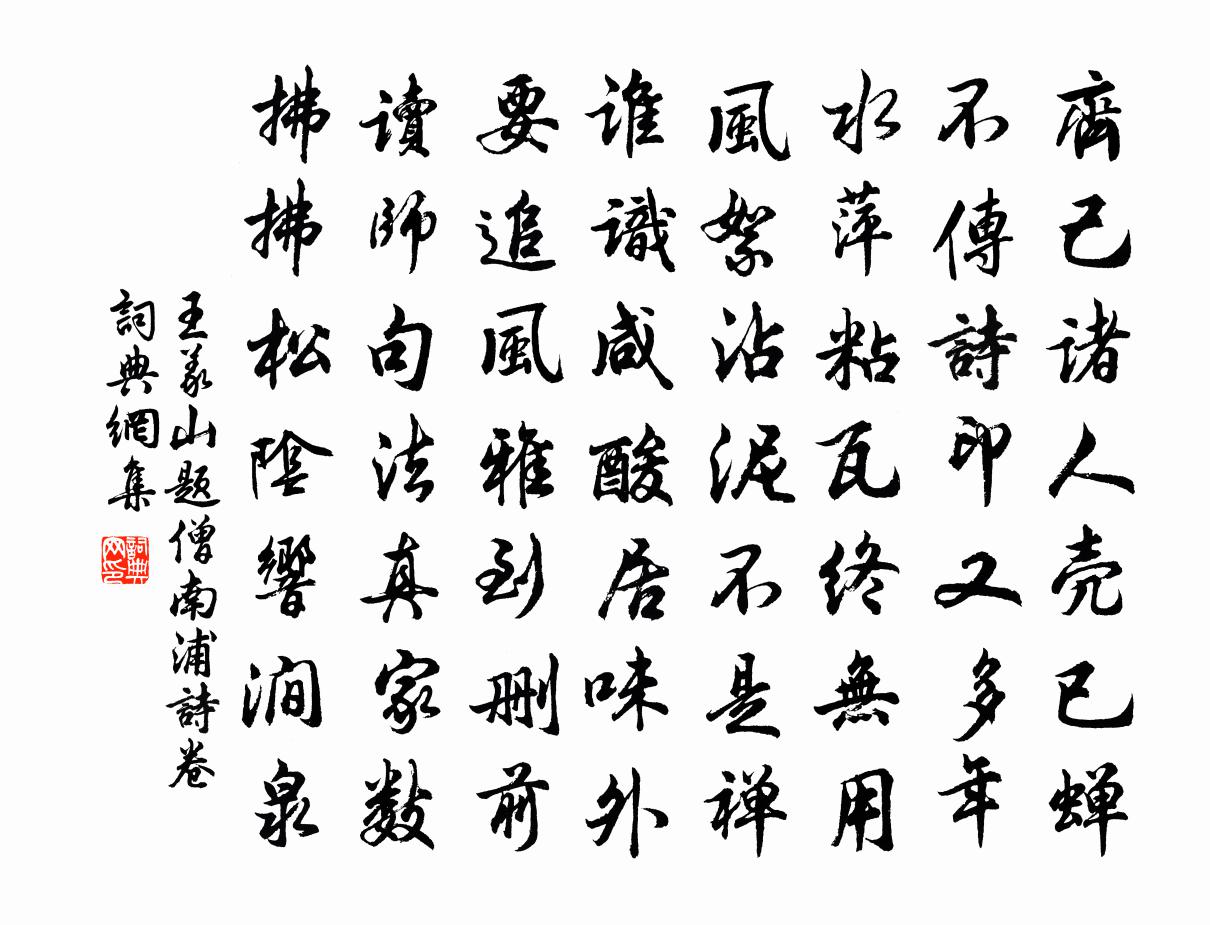 齊己诸人壳已蝉
不傳詩印又多年
水萍粘瓦终無用
風絮沾泥不是禅
谁識咸酸居味外
要追風雅到删前
讀師句法真家数
拂拂松陰響澗泉
王义山题僧南浦詩卷
詞典網集
詞典网印